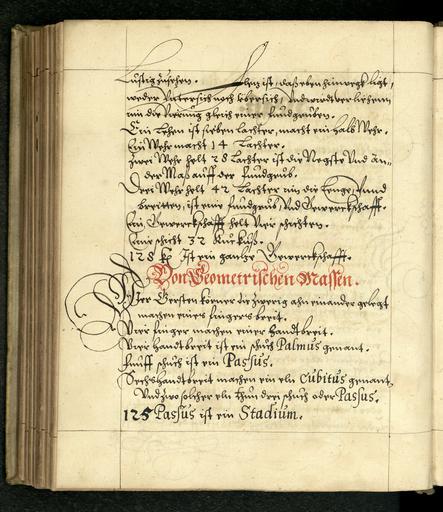 Lustig zusehen. Lehen ist, daß eben hinwegk ligt,
weder Untersich noch ubersich, Und wirdt verliehenn
nin die Vierung gleich einer fundgruben.
Ein Lehen ist sieben lachter, macht ein halb Wehr.
Ein Wehr macht 14 Lachter.
Zwei Wehr helt 28 Lachter ist die Negste Und an-
der Maß auff der fundgrub.
Drei Wehr helt 42 Lachter nin die Lenge, Unnd
breitten, ist eine fundgrub, Und Gewerckschafft.
Ein Gewerckschafft helt Vier schichten.
Eine schicht 32 Kuckuß.
128 Ist ein gantze Gewerckschafft.
Von Geometrischen Massen.
Vier Gersten körner die zwerig ahn einander gelegt
machen eines fingers breit.
Vier finger machen einer handtbreit.
Vier handtbreit ist ein schuh Palmus genant.
fünff schuh ist ein Passus.
Sechs handtbreit machen ein eln Cubitus genant,
Und zwo solcher eln thun drei schuh oder Passus.
125 Passus ist ein Stadium.